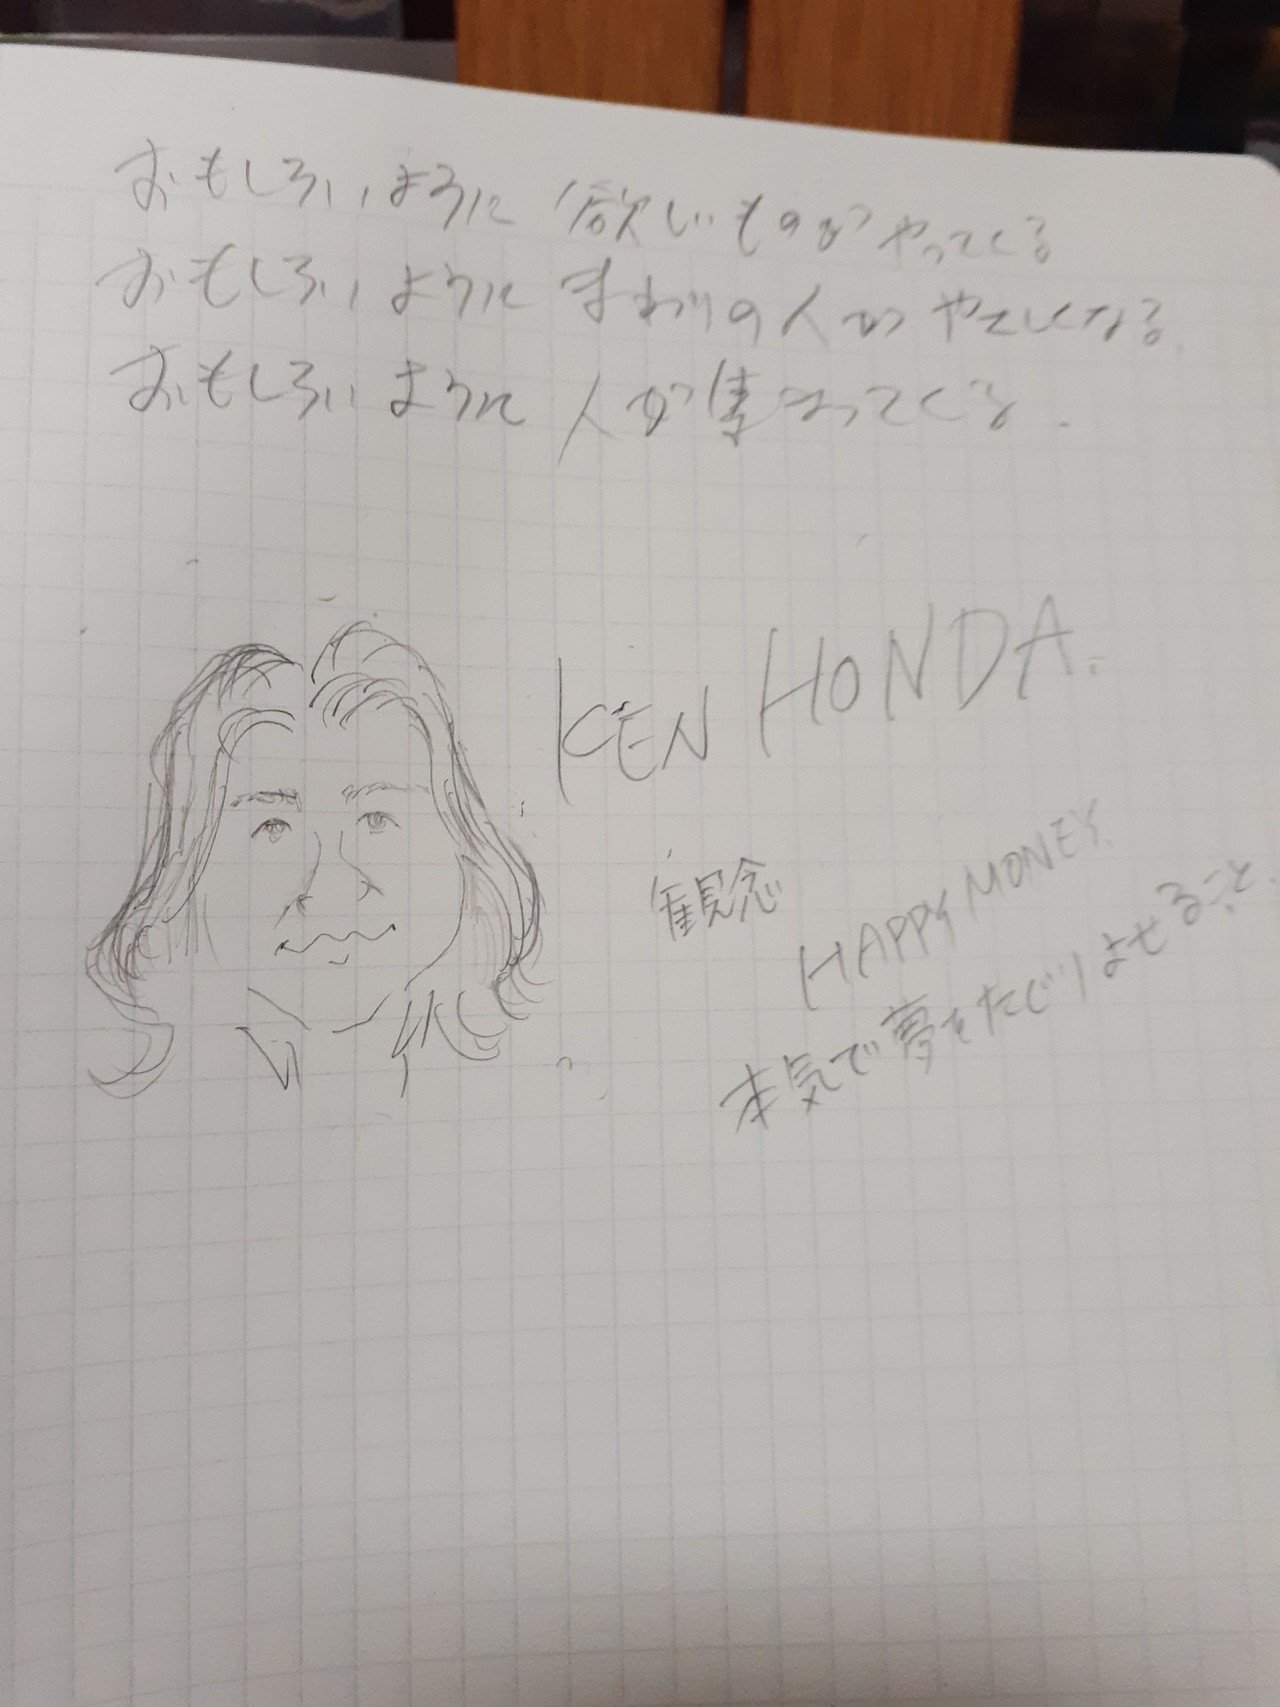 おもしろいように 欲しいものがやってくる
おもしろいように まわりの人が やさしくなる.
おもしろいように 人が集まってくる.
KEN HONDA.
観念
HAPPY MONEY.
本気で夢をたぐりよせること.